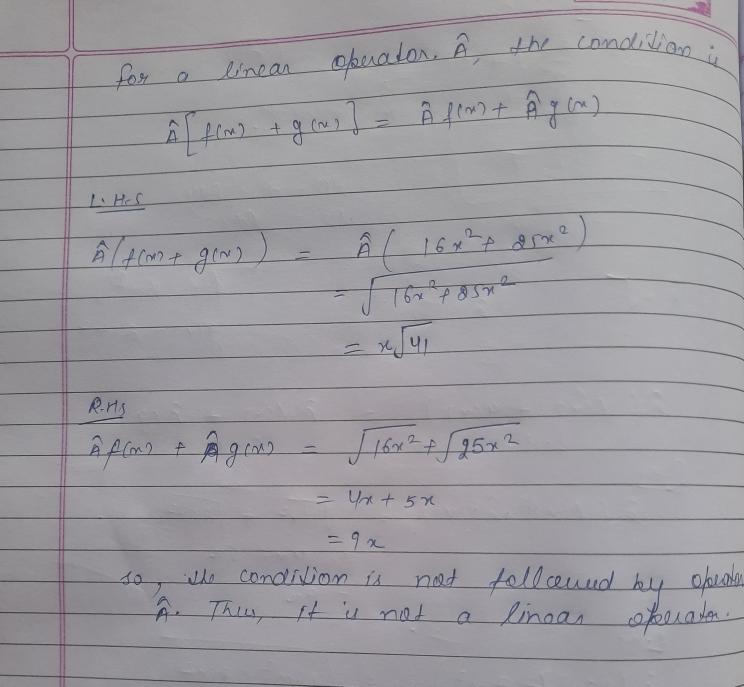 for a linear operator. Â, the condition is
Â[f(x) + g(x)] = Â f(x) + Â g(x)
L.H.S
Â(f(x) + g(x)) = Â( 16x² + 25x²)
= √16x² + 25x²
= x√41
R.HS
Â f(x) + Â g(x) = √16x² + √25x²
= 4x + 5x
= 9x
so, the condition is not followed by operator
Â. Thus, it is not a linear operator.